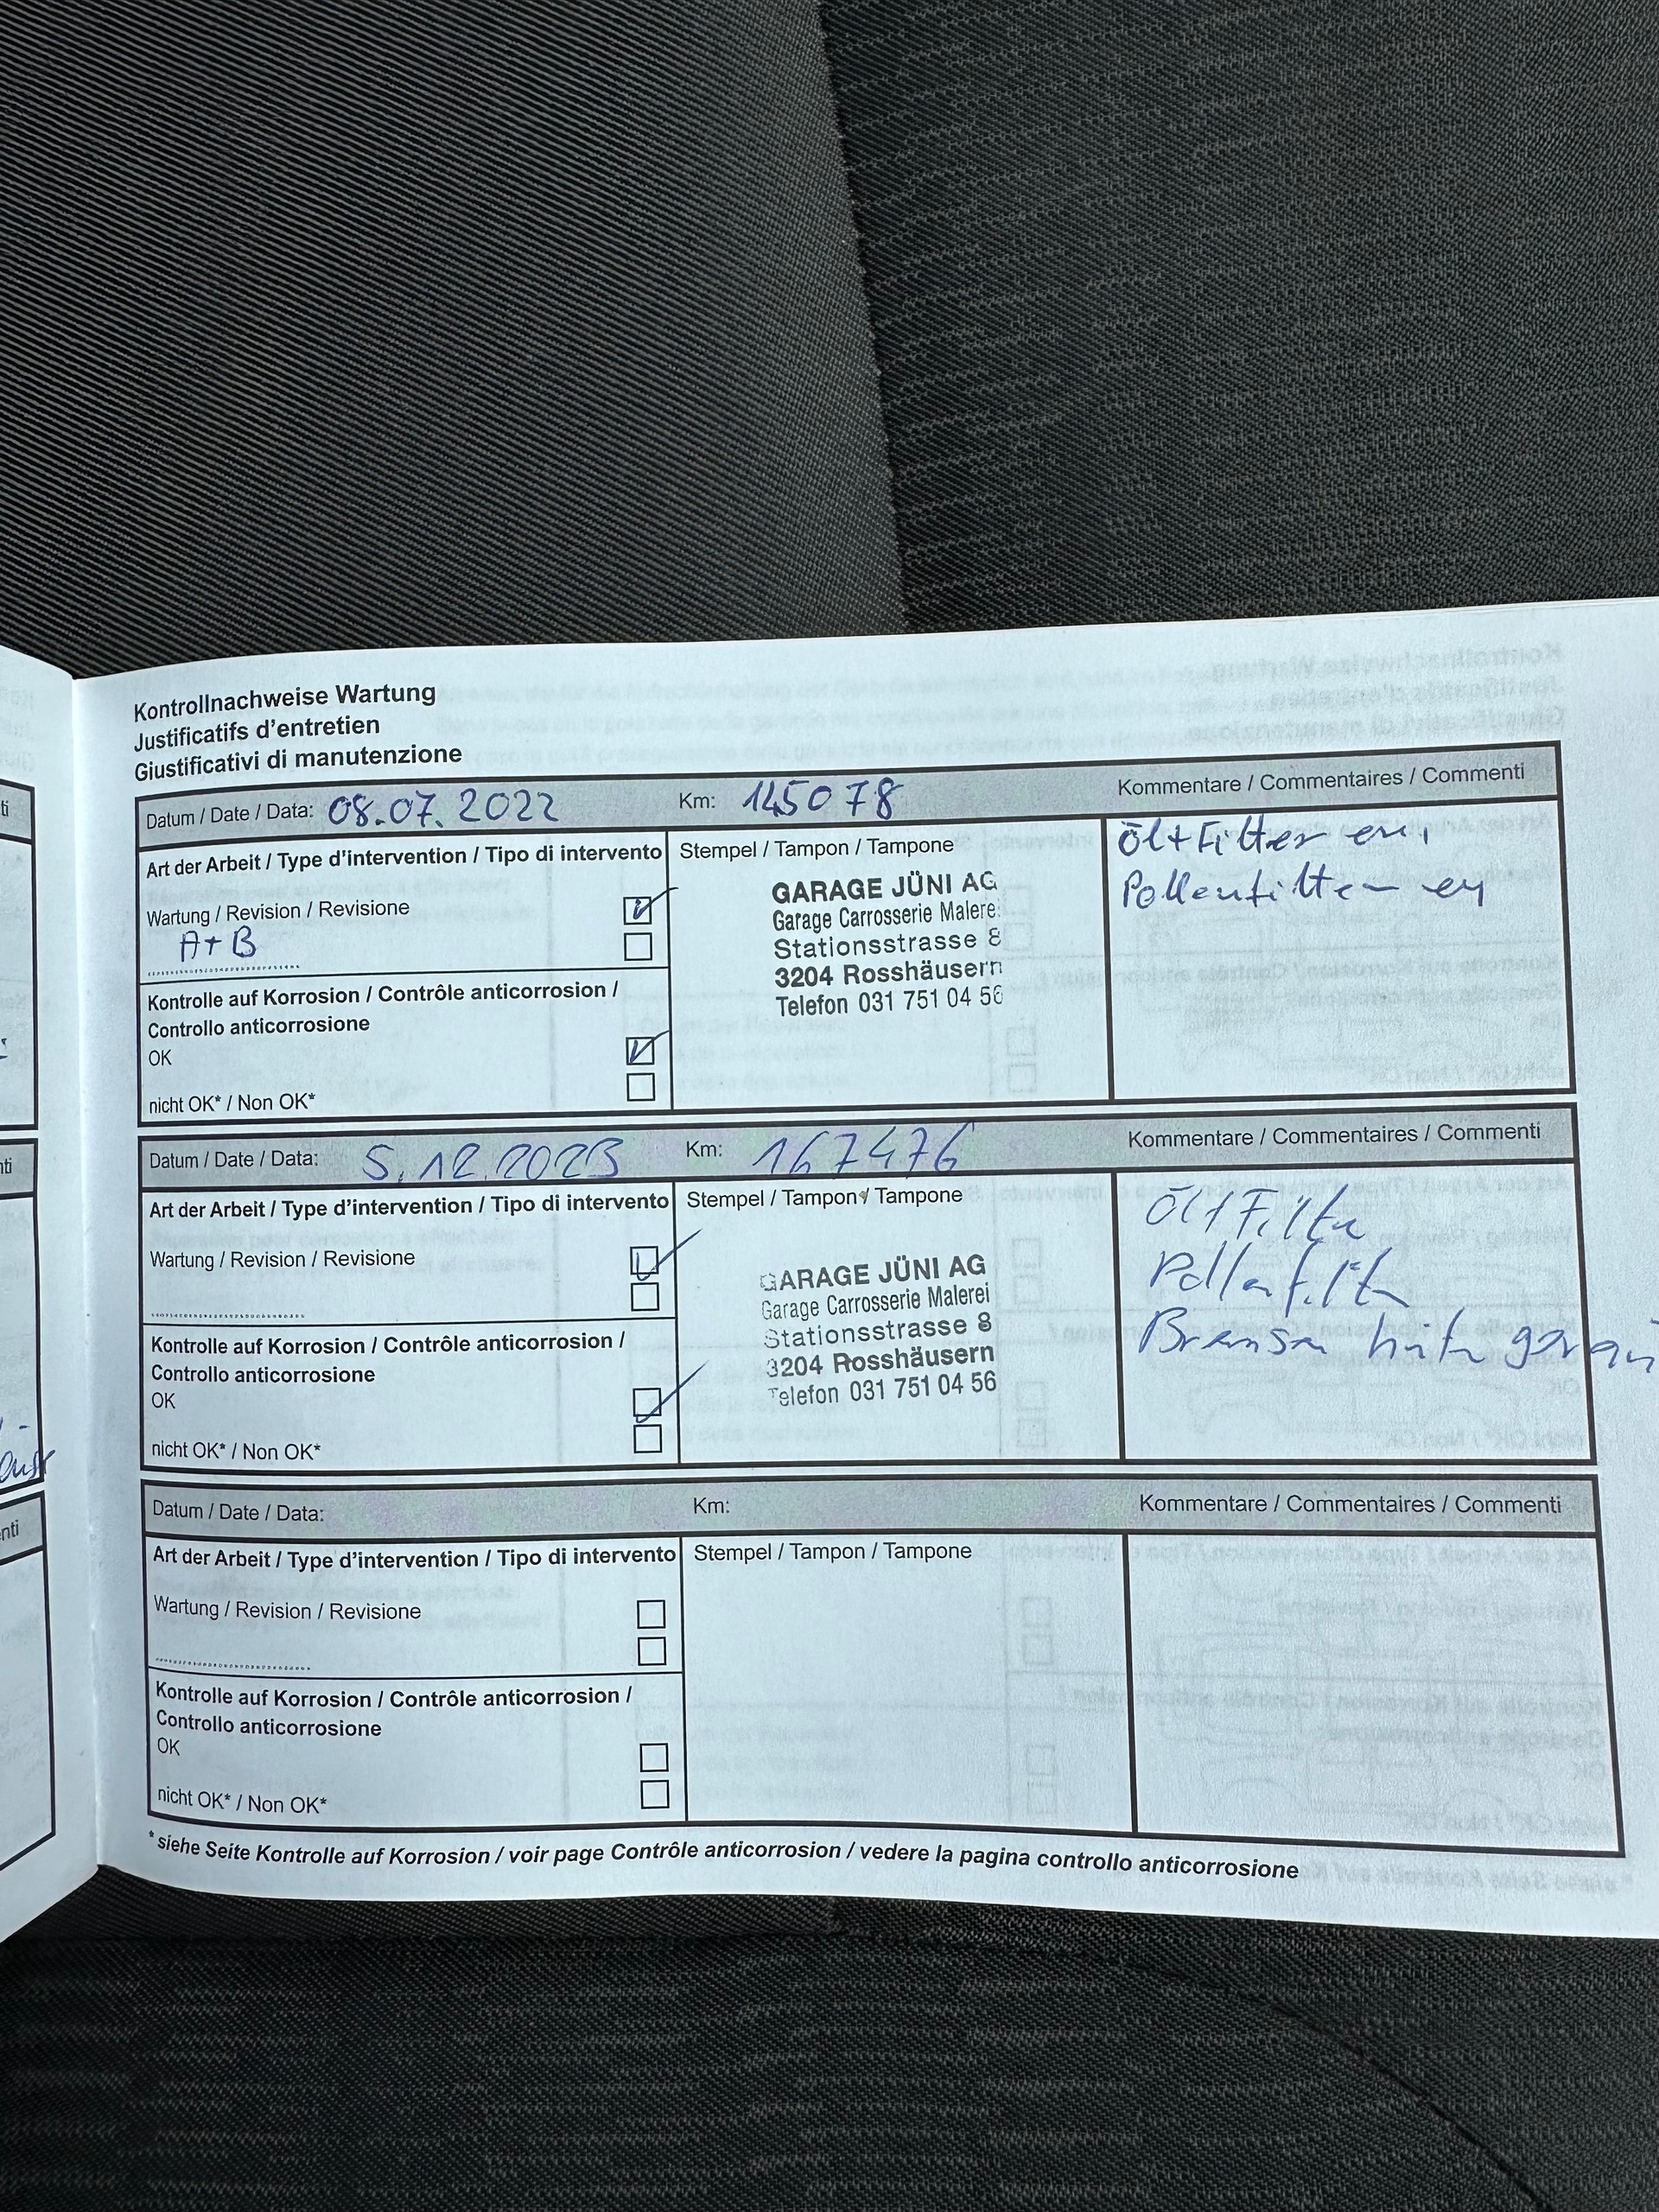 Kontrollnachweise Wartung
Justificatifs d'entretien
Giustificativi di manutenzione
Datum / Date / Data: 08.07.2022 Km: 145078 Kommentare / Commentaires / Commenti
Art der Arbeit / Type d'intervention / Tipo di intervento
Wartung / Revision / Revisione
A+B
Kontrolle auf Korrosion / Contrôle anticorrosion /
Controllo anticorrosione
OK
nicht OK* / Non OK*
Stempel / Tampon / Tampone
GARAGE JÜNI AG
Garage Carrosserie Malere
Stationsstrasse 8
3204 Rosshäusern
Telefon 031 751 04 56
Öl+Filter ern,
Pollenfilter
Datum / Date / Data: 5.12.2023 Km: 167476 Kommentare / Commentaires / Commenti
Art der Arbeit / Type d'intervention / Tipo di intervento
Wartung / Revision / Revisione
Kontrolle auf Korrosion / Contrôle anticorrosion /
Controllo anticorrosione
OK
nicht OK* / Non OK*
Stempel / Tampon / Tampone
GARAGE JÜNI AG
Garage Carrosserie Malerei
Stationsstrasse 8
3204 Rosshäusern
Telefon 031 751 04 56
Öl+Filter
Pollenfilter
Bremsen
Datum / Date / Data: Km: Kommentare / Commentaires / Commenti
Art der Arbeit / Type d'intervention / Tipo di intervento
Wartung / Revision / Revisione
Kontrolle auf Korrosion / Contrôle anticorrosion /
Controllo anticorrosione
OK
nicht OK* / Non OK*
Stempel / Tampon / Tampone
*siehe Seite Kontrolle auf Korrosion / voir page Contrôle anticorrosion / vedere la pagina controllo anticorrosione